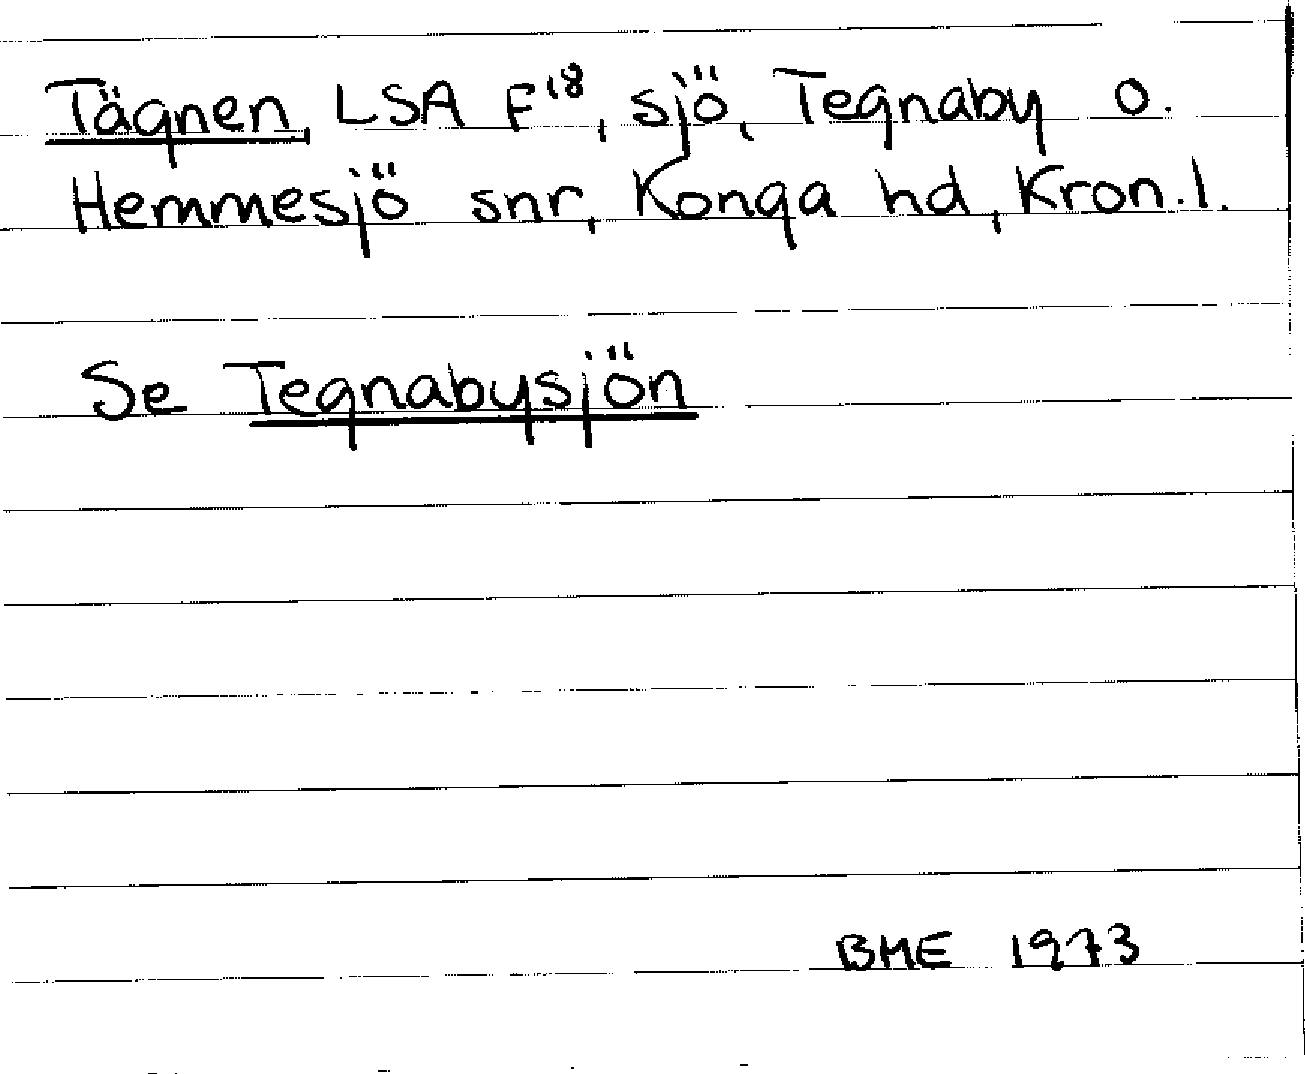 Tägnen, LSA F¹⁸, sjö, Tegnaby o.
Hemmesjö snr, Konga hd, Kron.l.
Se Tegnabysjön
BME 1973